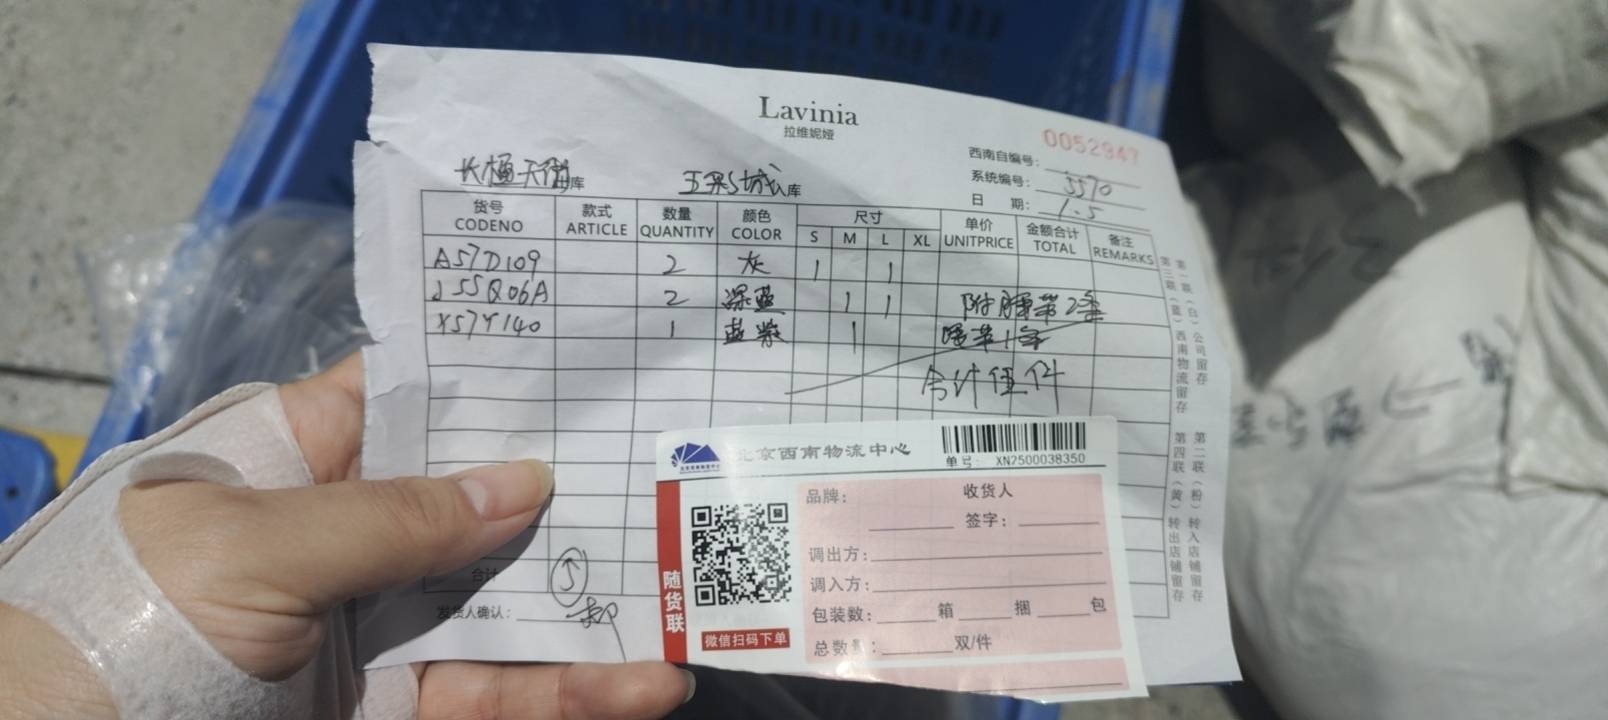 Lavinia
拉维妮娅
西南自编号: 0052947
系统编号: 5570
日 期: 1.5
长楹天街 库 五彩城 库
货号 款式 数量 颜色 尺寸 单价 金额合计 备注
CODENO ARTICLE QUANTITY COLOR S M L XL UNITPRICE TOTAL REMARKS
A57D109 2 灰 1 1
J55Q06A 2 深蓝 1 1 附腰带2条
X57Y140 1 蓝紫 1 腰带1条
合计伍件
合计 5
发货人确认:
第一联(白)公司留存
第二联(粉)转入店铺留存
第三联(蓝)西南物流留存
第四联(黄)转出店铺留存
北京西南物流中心
单号: XN2500038350
品牌: 收货人
签字:
调出方:
调入方:
包装数: 箱 捆 包
总数量: 双/件
随货联
微信扫码下单